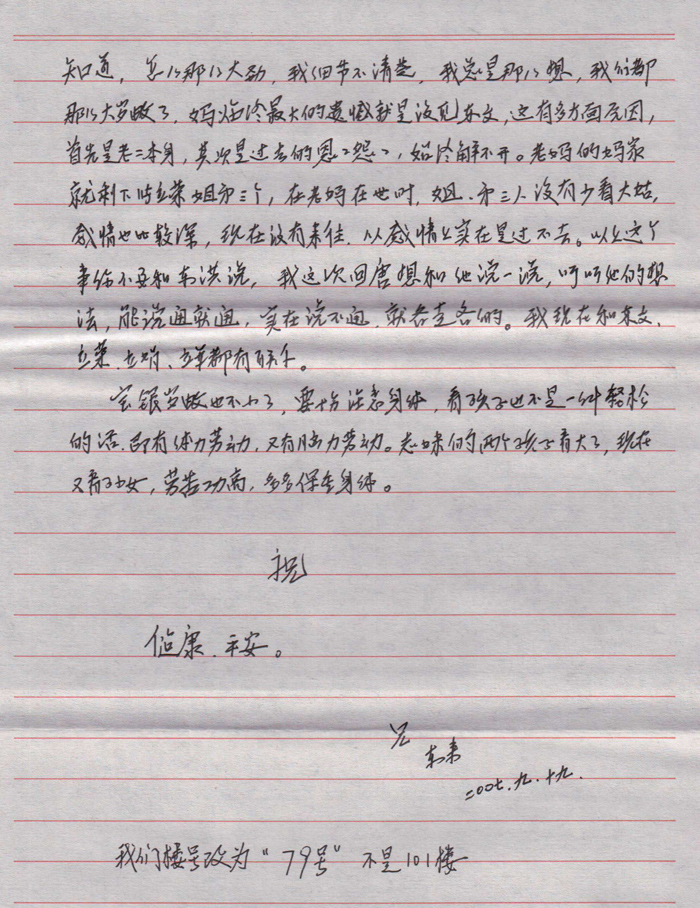 知道，怎么那么大劲，我细节不清楚，我总是那么想，我们都
那么大岁数了，妈临终最大的遗憾就是没见东文，这有多方面原因，
首先是老二本身，其次是过去的恩恩怨怨，始终解不开。老妈的妈家
就剩下与立荣姐弟三个，在老妈在世时，姐、弟三人没有少看大姑，
感情也比较深，现在没有来往，从感情上实在是过不去。以上这个
事你不要和东洪说，我这次回唐想和他说一说，听听他的想
法，能说通就通，实在说不通，就各走各的。我现在和东文、
立荣、立娟、立军都有联系。
宝银岁数也不小了，要十分注意身体，看孩子也不是一件轻松
的活，即有体力劳动，又有脑力劳动。志妹们的两个孩子看大了，现在
又看小女，劳苦功高，多多保重身体。
祝
健康、平安。
兄
东来
二00七.九.十九.
我们楼号改为“79号”不是101楼